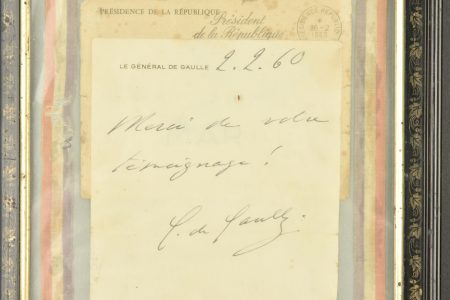 PRÉSIDENCE DE LA RÉPUBLIQUE
Président
de la République
LE GÉNÉRAL DE GAULLE 2.2.60
Merci de votre
témoignage !
C. de Gaulle.